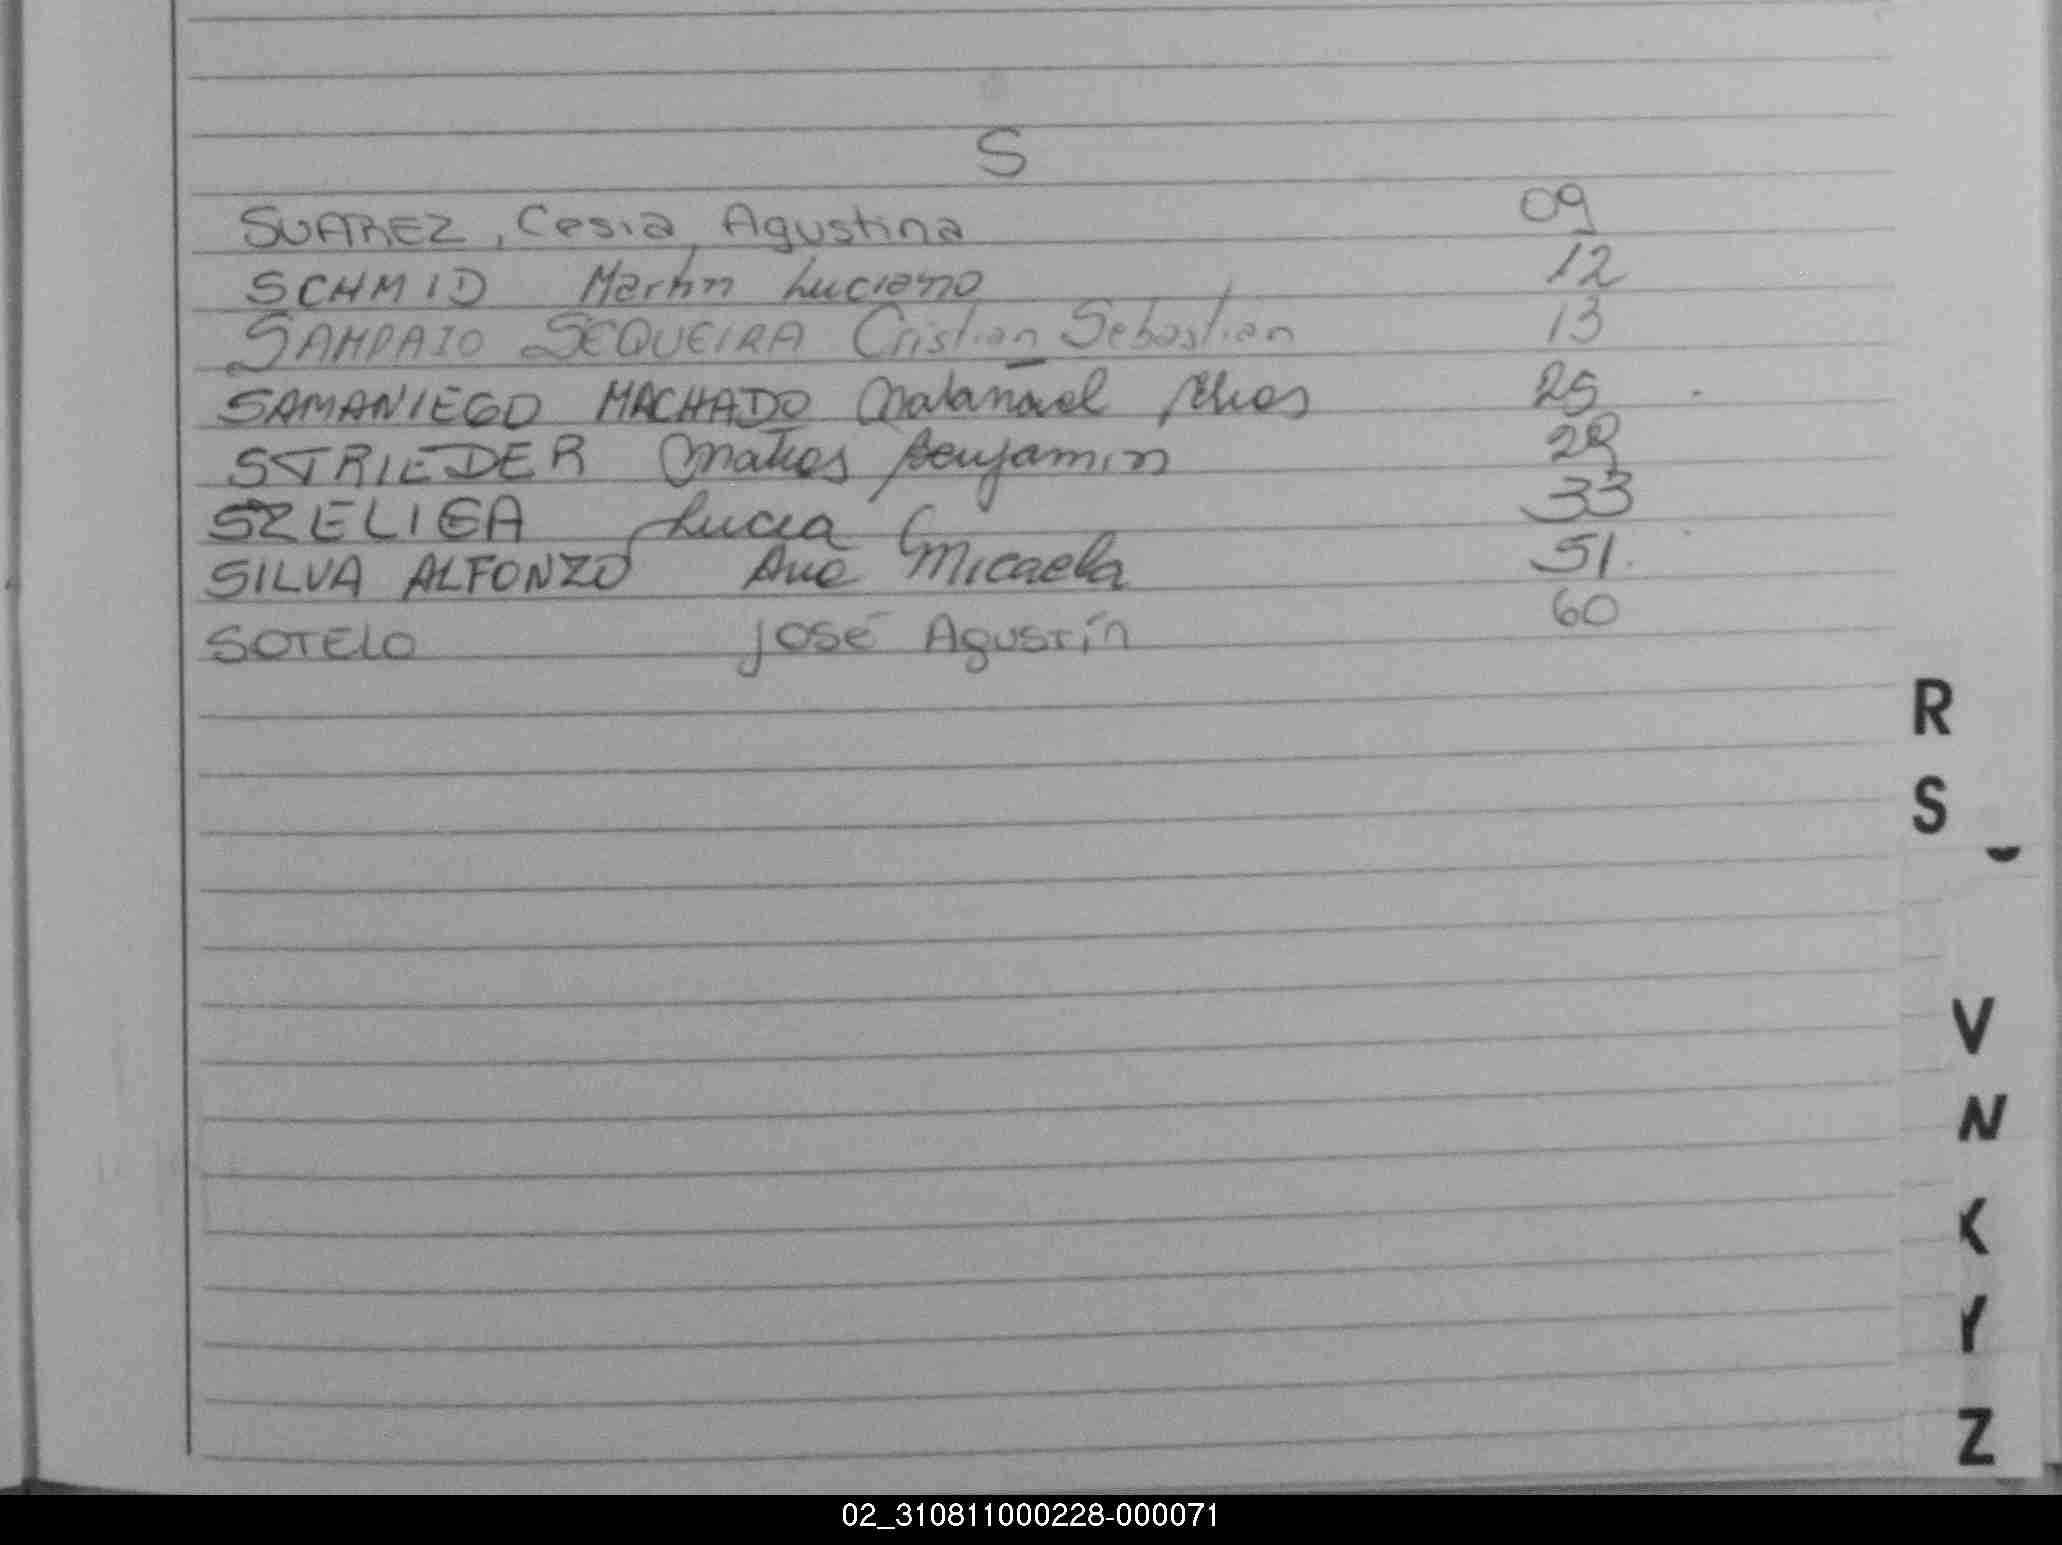 S
SUAREZ, Cesia Agustina 09
SCHMID Martin Luciano 12
SAMPAIO SEQUEIRA Cristian Sebastian 13
SAMANIEGO MACHADO Natanael Elias 25
STRIEDER Matias Benjamin 29
SZELIGA Lucia 33
SILVA ALFONZO Ana Micaela 51.
SOTELO José Agustín 60
R
S
V
N
K
Y
Z
02_310811000228-000071